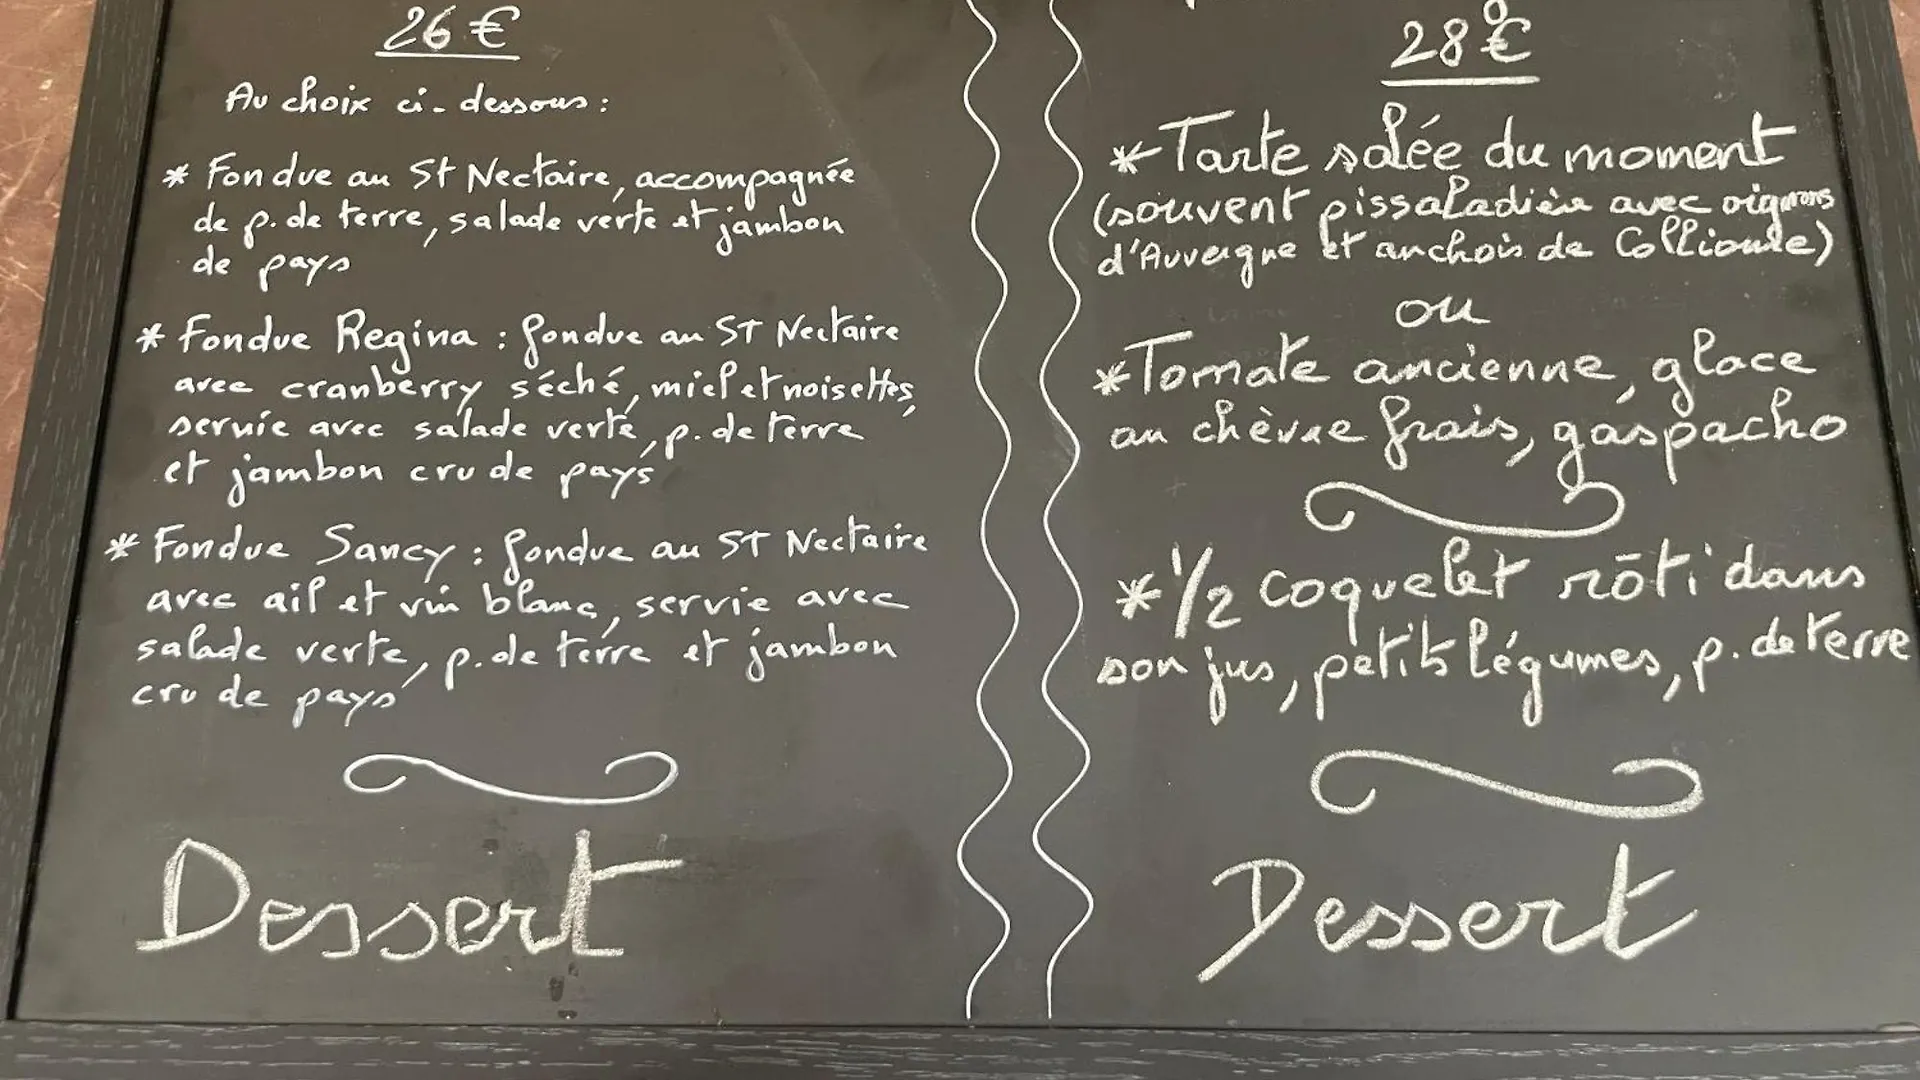 26 €
Au choix ci-dessous :
* Fondue au St Nectaire, accompagnée
de p. de terre, salade verte et jambon
de pays
* Fondue Regina : fondue au ST Nectaire
avec cranberry séché, miel et noisettes,
servie avec salade verte, p. de terre
et jambon cru de pays
* Fondue Sancy : fondue au ST Nectaire
avec ail et vin blanc, servie avec
salade verte, p. de terre et jambon
cru de pays
Dessert
28 €
* Tarte salée du moment
(souvent pissaladière avec oignons
d'Auvergne et anchois de Collioure)
ou
* Tomate ancienne, glace
au chèvre frais, gaspacho
* 1/2 coquelet rôti dans
son jus, petits légumes, p. de terre
Dessert